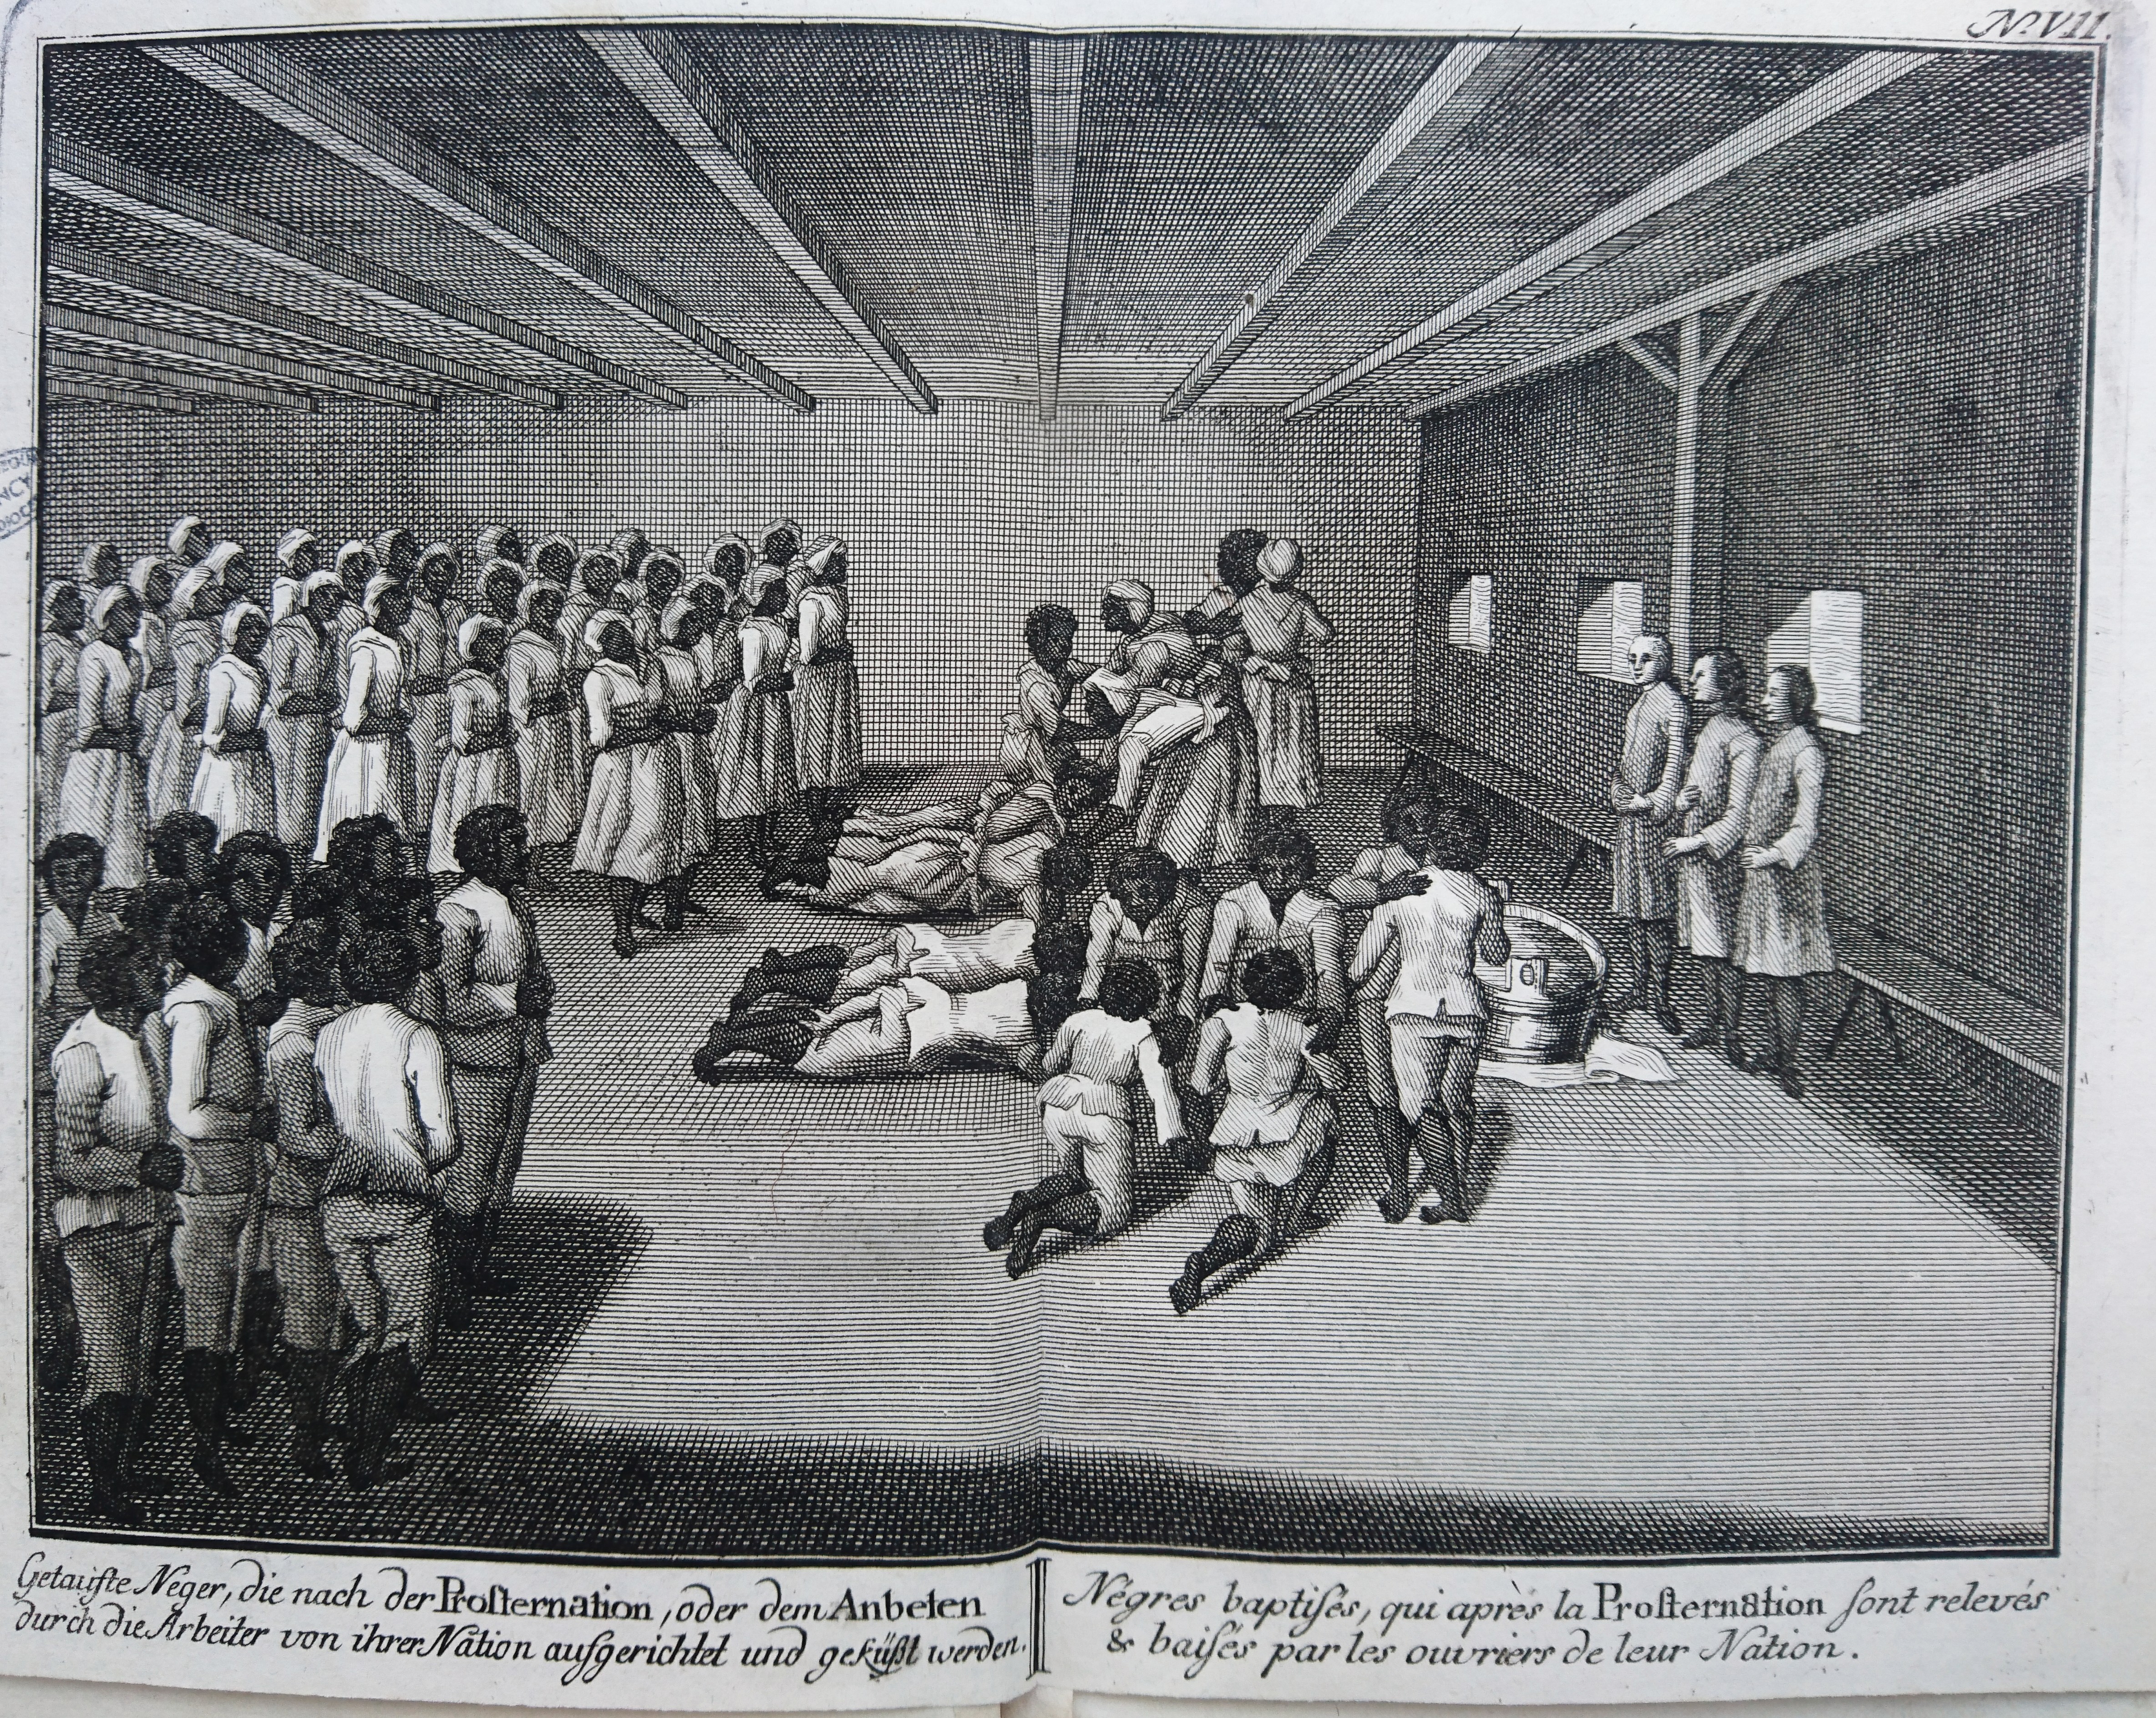 No. VII.
Getaufte Neger, die nach der Proſternation, oder dem Anbeten
durch die Arbeiter von ihrer Nation aufgerichtet und geküßt werden.
Négres baptiſés, qui après la Proſternation ſont relevés
& baiſés par les ouvriers de leur Nation.